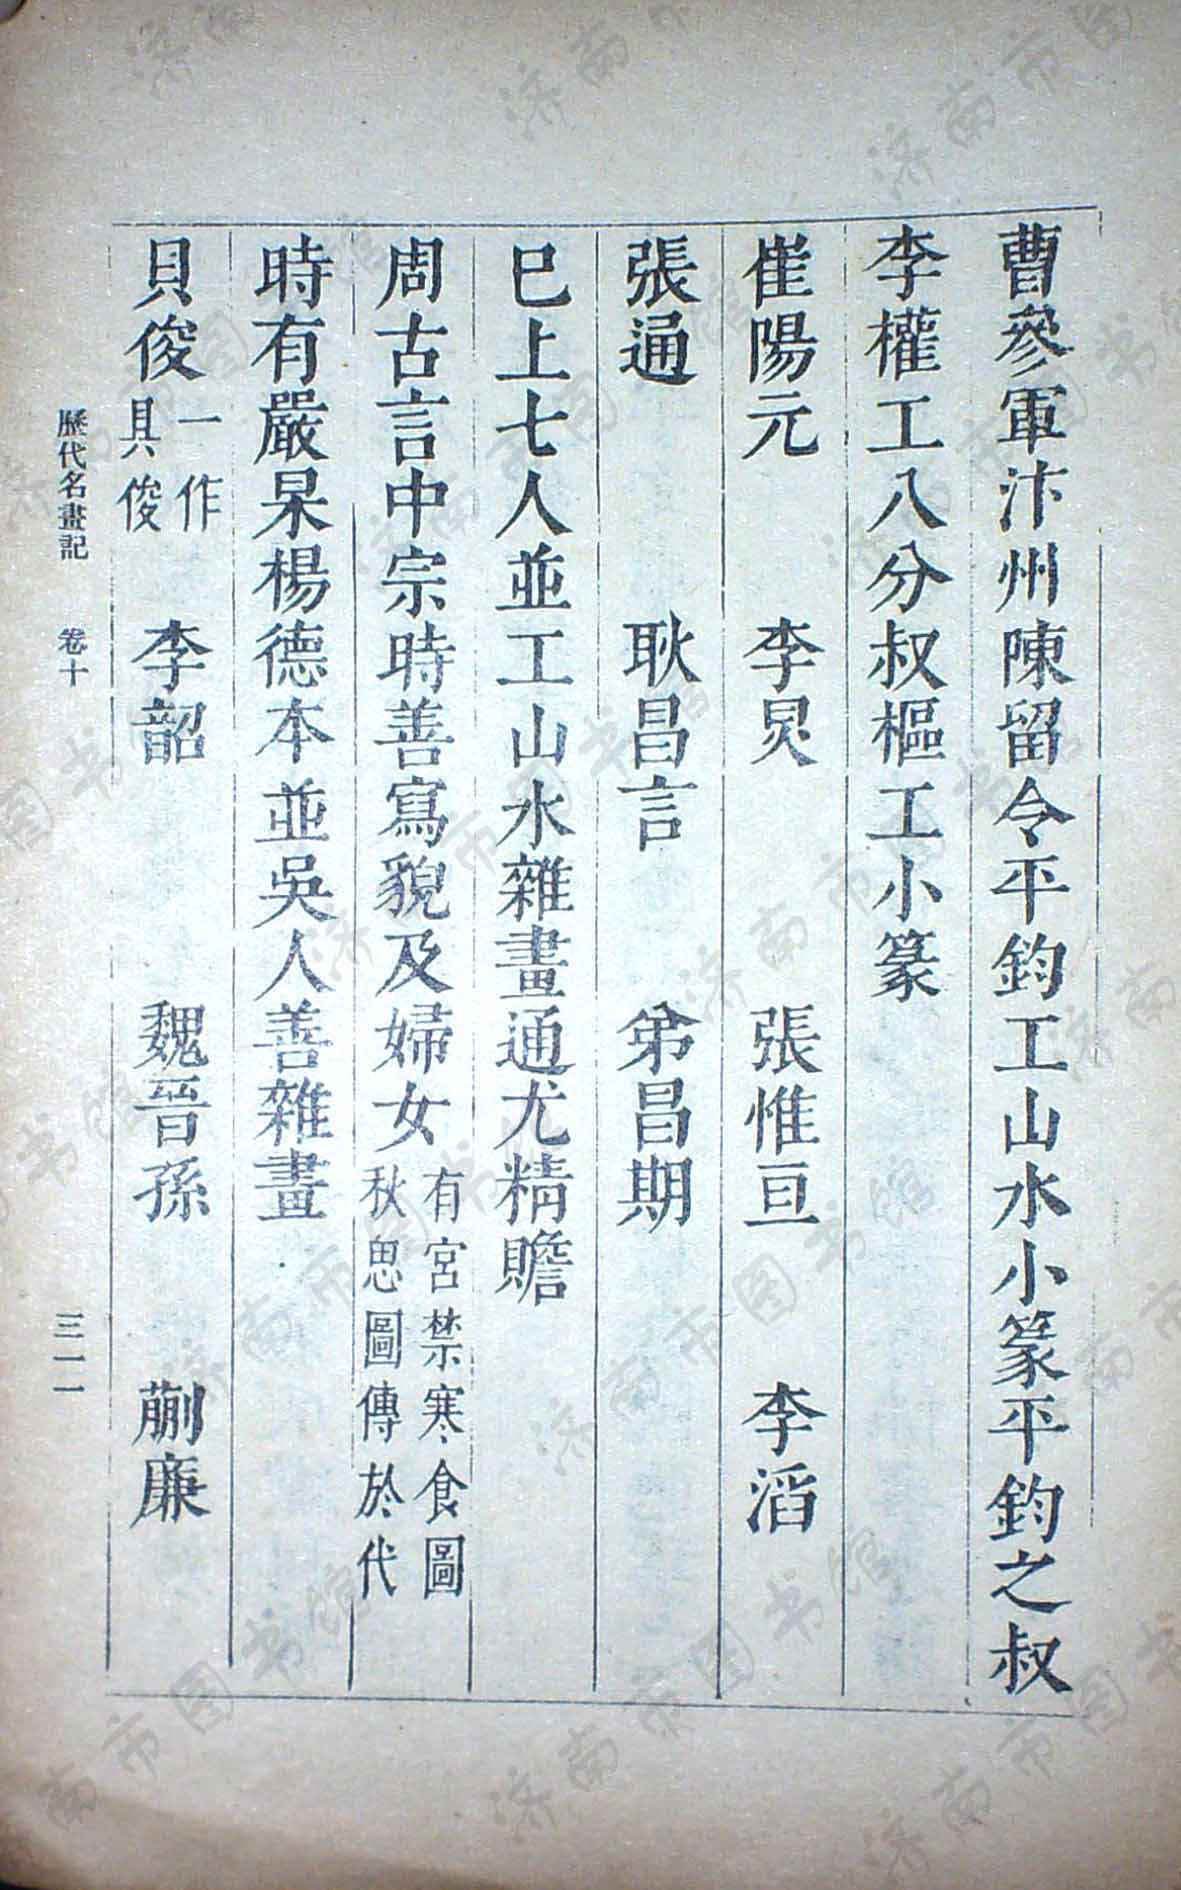 曹參軍汴州陳留令平鈞工山水小篆平鈞之叔
李權工八分叔樞工小篆
崔陽元 李炅 張惟亘 李滔
張通 耿昌言 弟昌期
巳上七人並工山水雜畫通尤精贍
周古言中宗時善寫貌及婦女有宮禁寒食圖秋思圖傳於代
時有嚴杲楊德本並吳人善雜畫
貝俊一作具俊 李韶 魏晉孫 蒯廉
歷代名畫記 卷十 三一一
济南市图书馆